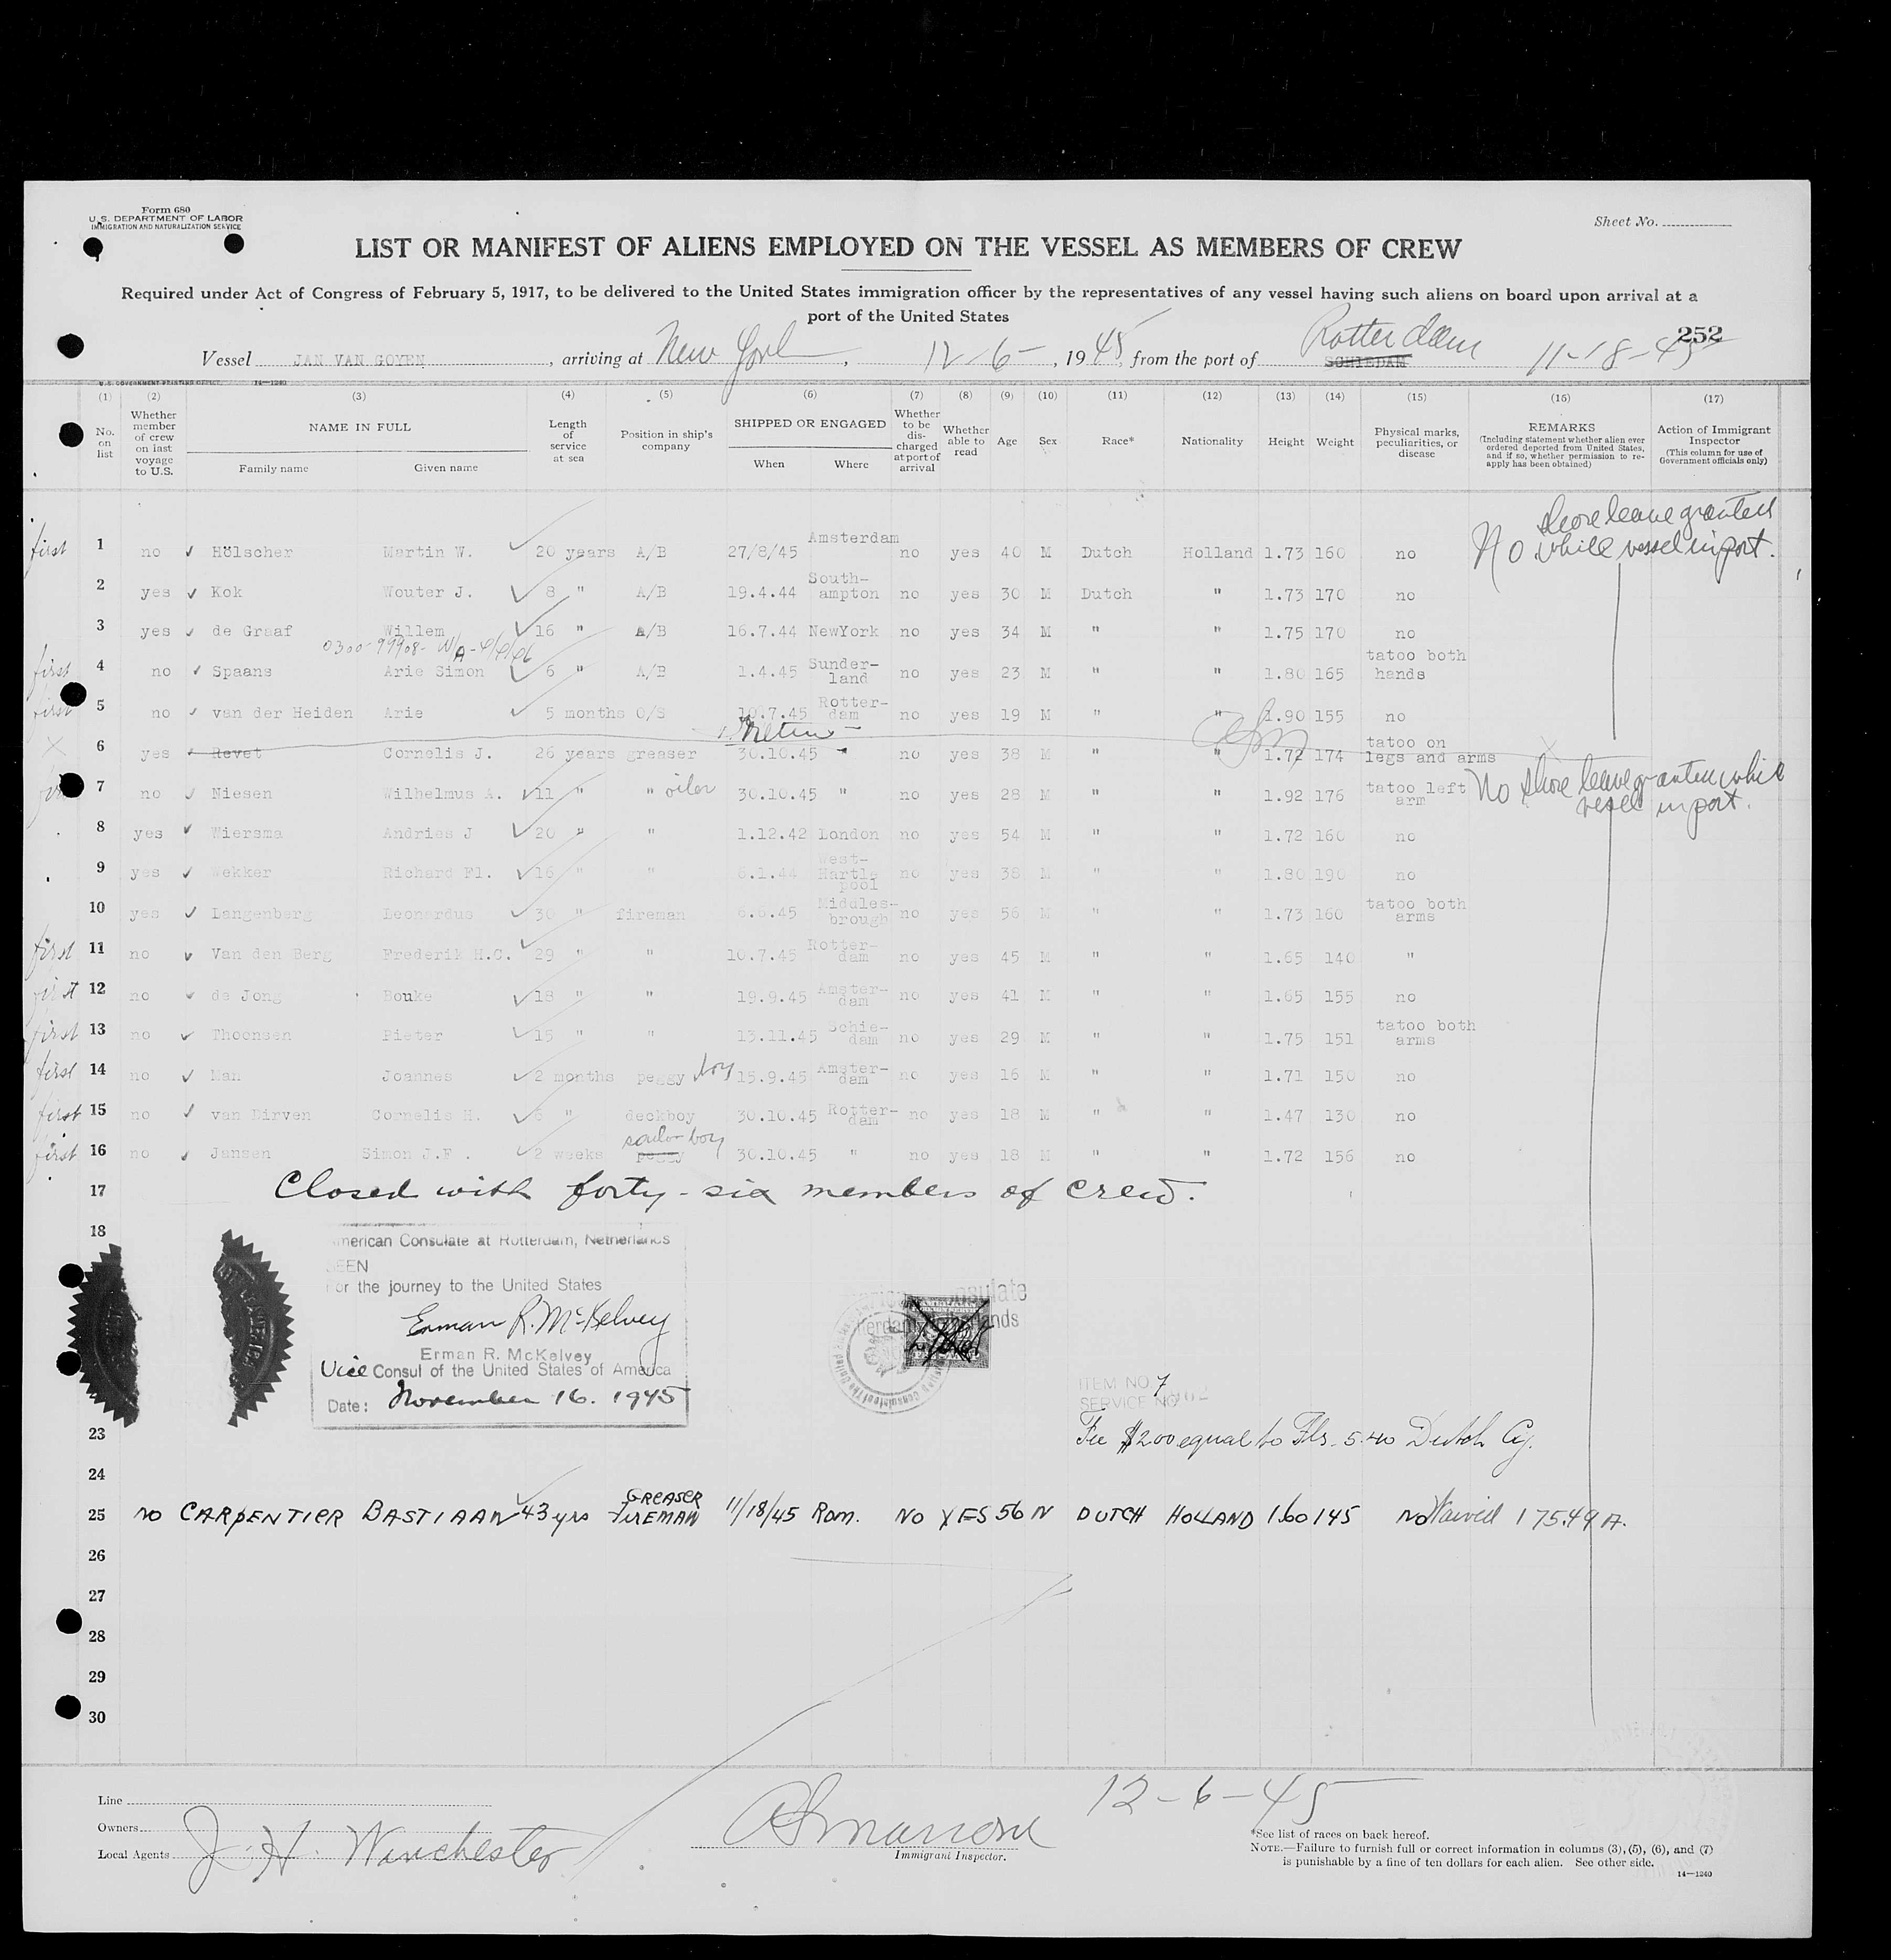 Form 680
U. S. DEPARTMENT OF LABOR
IMMIGRATION AND NATURALIZATION SERVICE
Sheet No.
LIST OR MANIFEST OF ALIENS EMPLOYED ON THE VESSEL AS MEMBERS OF CREW
Required under Act of Congress of February 5, 1917, to be delivered to the United States immigration officer by the representatives of any vessel having such aliens on board upon arrival at a
port of the United States
252
Vessel JAN VAN GOYEN, arriving at New York, 12-6-, 1945, from the port of SCHIEDAM Rotterdam 11-18-45
U.S. GOVERNMENT PRINTING OFFICE 14-1240
(1) (2) (3) (4) (5) (6) (7) (8) (9) (10) (11) (12) (13) (14) (15) (16) (17)
No. on list
Whether member of crew on last voyage to U.S.
NAME IN FULL
Family name Given name
Length of service at sea
Position in ship's company
SHIPPED OR ENGAGED
When Where
Whether to be discharged at port of arrival
Whether able to read
Age Sex Race* Nationality Height Weight
Physical marks, peculiarities, or disease
REMARKS
(Including statement whether alien ever ordered deported from United States, and if so, whether permission to reapply has been obtained)
Action of Immigrant Inspector
(This column for use of Government officials only)
first 1 no Hölscher Martin W. 20 years A/B 27/8/45 Amsterdam no yes 40 M Dutch Holland 1.73 160 no No shore leave granted while vessel in port.
2 yes Kok Wouter J. 8 " A/B 19.4.44 South-ampton no yes 30 M Dutch " 1.73 170 no
3 yes de Graaf Willem 16 " A/B 16.7.44 NewYork no yes 34 M " " 1.75 170 no
0300-99908-
first 4 no Spaans Arie Simon 6 " A/B 1.4.45 Sunder-land no yes 23 M " " 1.80 165 tatoo both hands
first 5 no van der Heiden Arie 5 months O/S 10.7.45 Rotter-dam no yes 19 M " " 1.90 155 no
X 6 yes Revet Cornelis J. 26 years greaser 30.10.45 " no yes 38 M " " 1.72 174 tatoo on legs and arms
7 no Niesen Wilhelmus A. 11 " " oiler 30.10.45 " no yes 28 M " " 1.92 176 tatoo left arm No shore leave granted while vessel in port.
8 yes Wiersma Andries J 20 " " 1.12.42 London no yes 54 M " " 1.72 160 no
9 yes Wekker Richard Fl. 16 " " 6.1.44 West-Hartlepool no yes 38 M " " 1.80 190 no
10 yes Langenberg Leonardus 30 " fireman 6.6.45 Middles-brough no yes 56 M " " 1.73 160 tatoo both arms
first 11 no Van den Berg Frederik H.C. 29 " " 10.7.45 Rotter-dam no yes 45 M " " 1.65 140 "
first 12 no de Jong Bouke 18 " " 19.9.45 Amster-dam no yes 41 M " " 1.65 155 no
first 13 no Thoonsen Pieter 15 " " 13.11.45 Schie-dam no yes 29 M " " 1.75 151 tatoo both arms
first 14 no Man Joannes 2 months peggy boy 15.9.45 Amster-dam no yes 16 M " " 1.71 150 no
first 15 no van Dirven Cornelis H. 6 " deckboy 30.10.45 Rotter-dam no yes 18 M " " 1.47 130 no
first 16 no Jansen Simon J.F. 2 weeks peggy sailor boy 30.10.45 " no yes 18 M " " 1.72 156 no
17 Closed with forty-six members of crew.
18
American Consulate at Rotterdam, Netherlands
SEEN
For the journey to the United States
Erman R. McKelvey
Erman R. McKelvey
Vice Consul of the United States of America
Date: November 16. 1945
ITEM NO. 7
SERVICE NO.
23 Fee $2.00 equal to Fls. 5.40 Dutch Cy.
24
25 NO CARPENTIER BASTIAAN 43 yrs GREASER FIREMAN 11/18/45 Rdm. NO YES 56 M DUTCH HOLLAND 1.60 145 NO Waived 175.49 A.
26
27
28
29
30
12-6-45
Line
Owners
Local Agents J. H. Winchester
Immigrant Inspector.
*See list of races on back hereof.
NOTE.—Failure to furnish full or correct information in columns (3), (5), (6), and (7)
is punishable by a fine of ten dollars for each alien. See other side.
14—1240